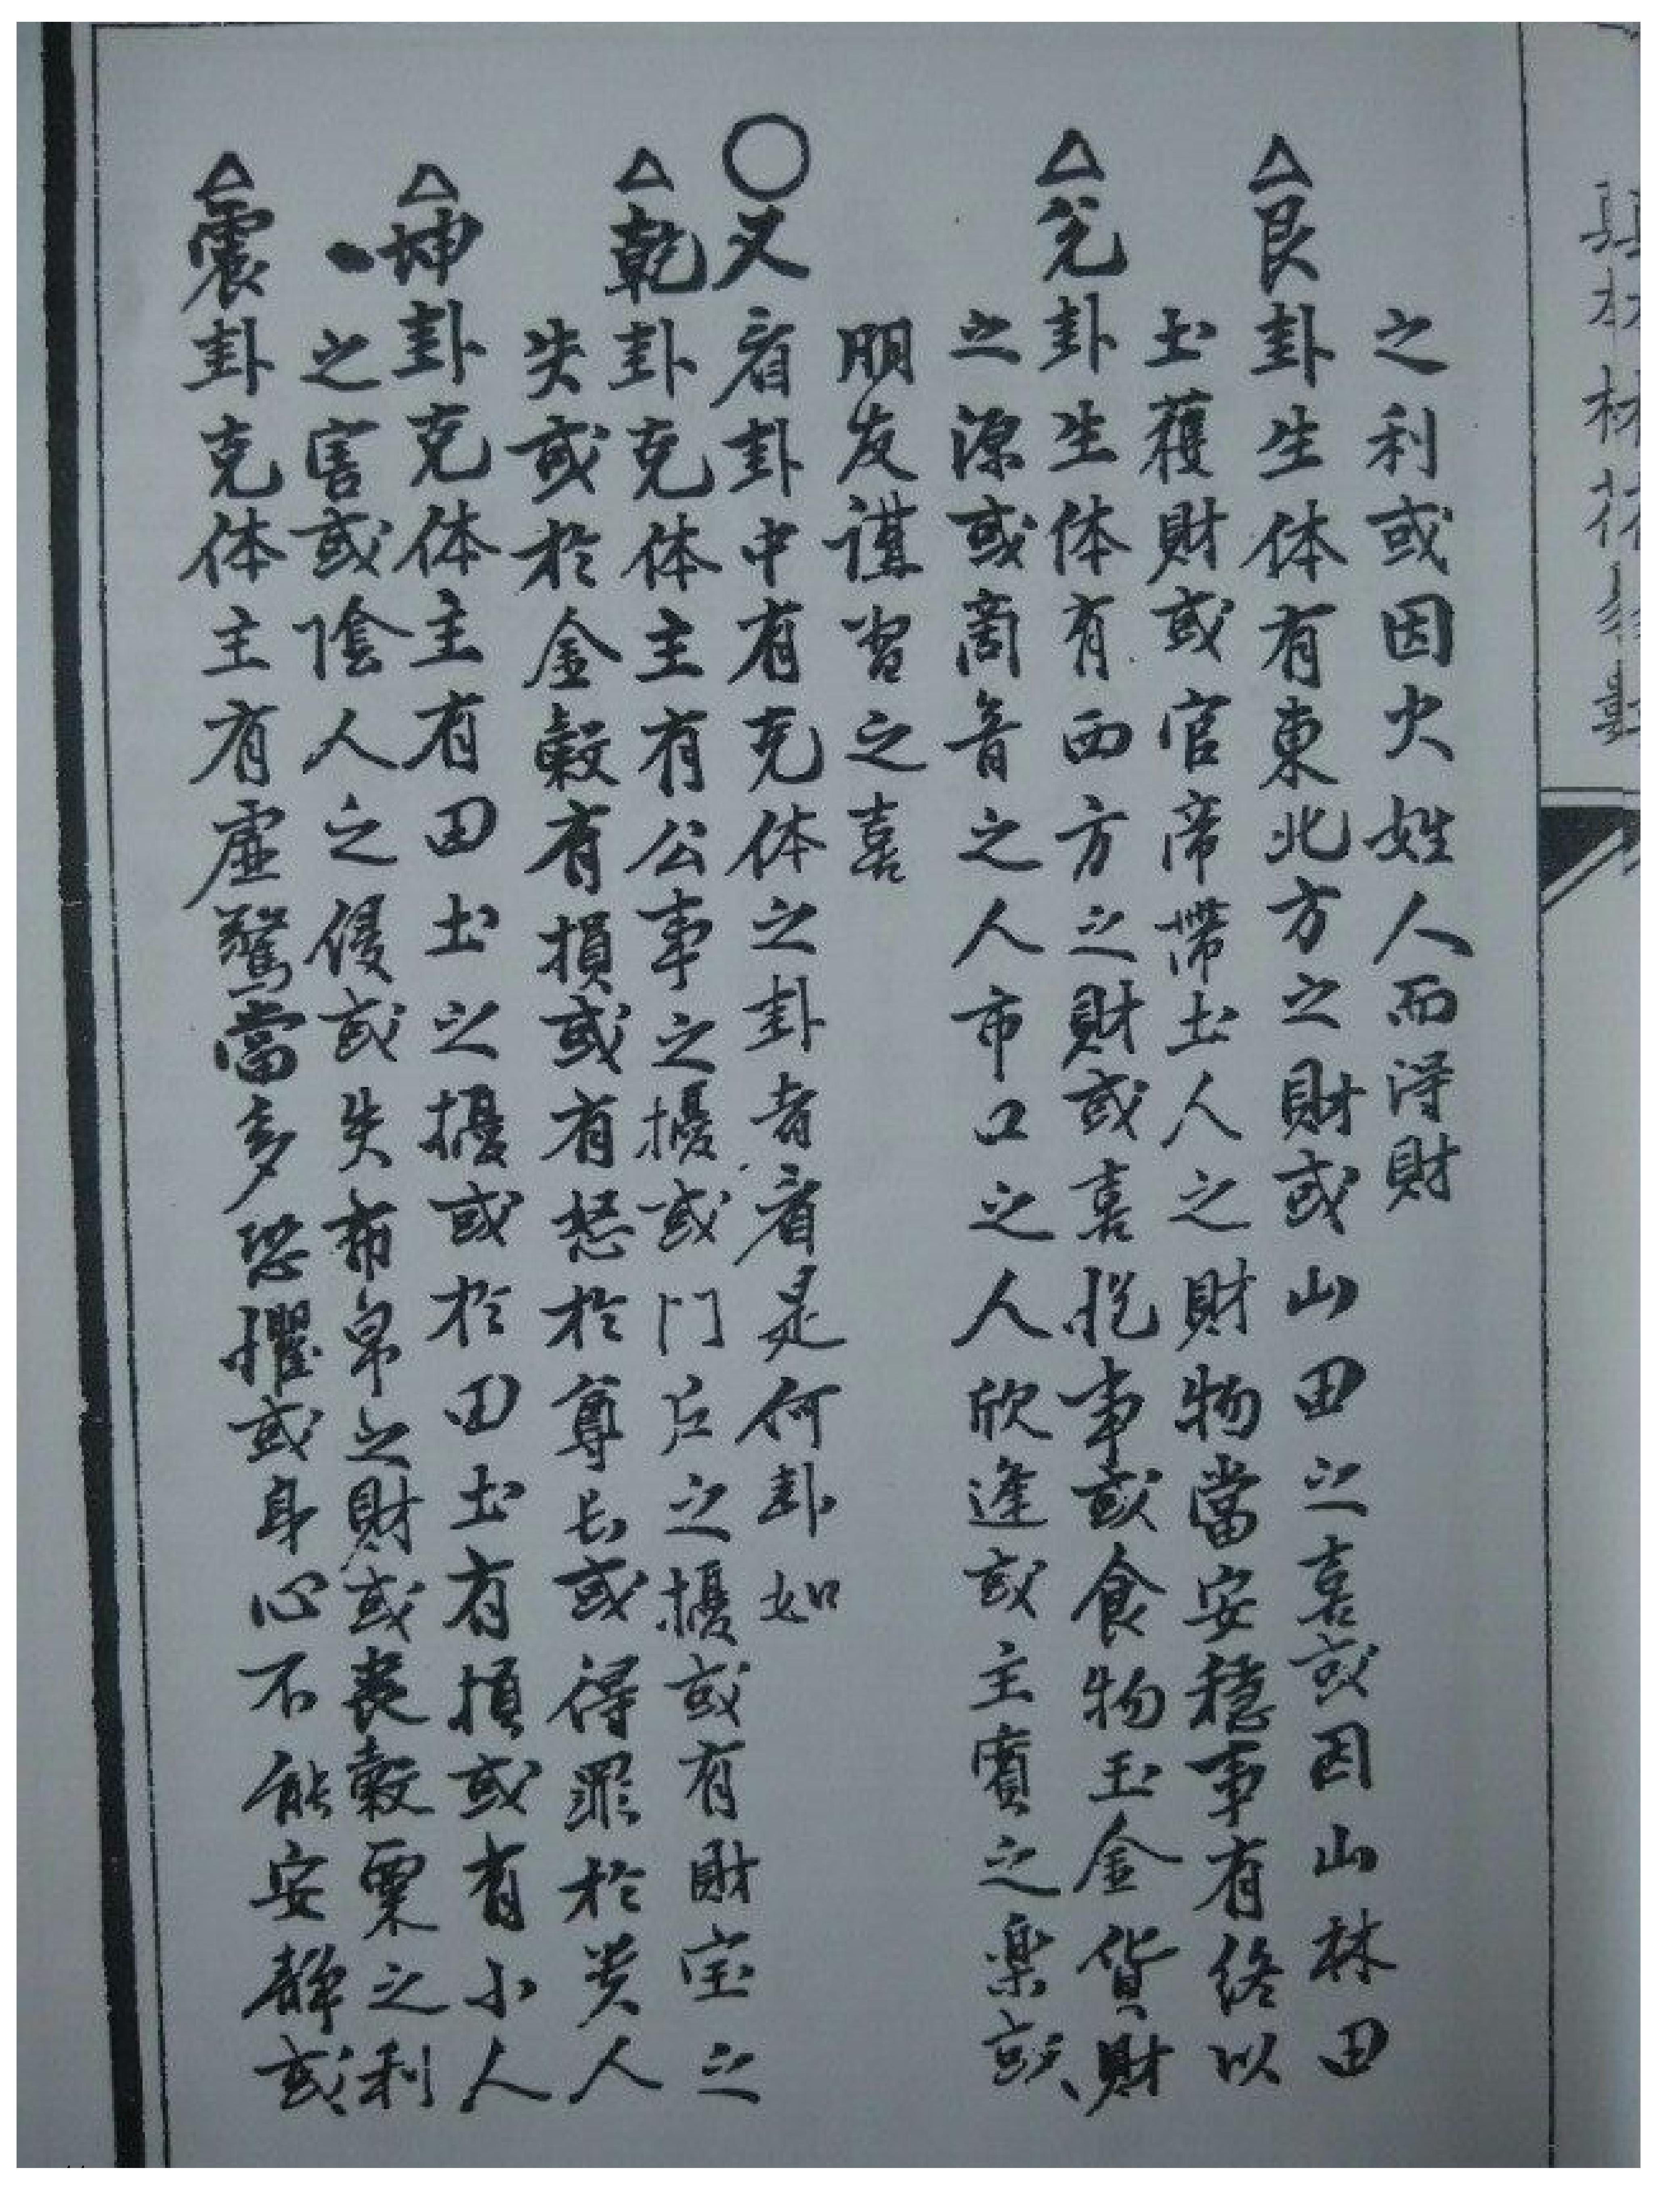 之利或因火姓人而得財
△艮卦生体有東北方之財或山田之喜或因山林田
土獲財或官帝帶土人之財物當安穩事有终以
△兑卦生体有西方之財或喜悦事或食物玉金貨財
之源或商音之人市口之人欣逢或主賓之楽或
朋友謀習之喜
○又看卦中有克体之卦者看是何卦如
△乾卦克体主有公事之擾或门户之擾或有財宝之
失或於金穀有損或有怒於尊長或得罪於贵人
△坤卦克体主有田土之擾或於田土有損或有小人
之害或陰人之侵或失布帛之財或喪穀粟之利
△震卦克体主有虚驚當多恐懼或身心不能安靜或